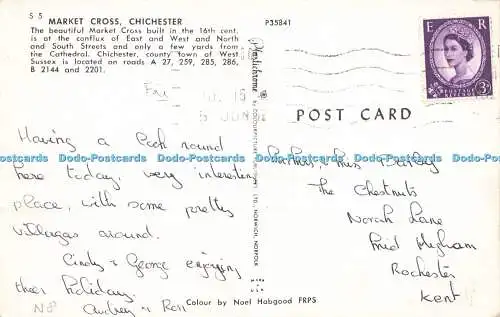 S 5
MARKET CROSS, CHICHESTER
The beautiful Market Cross built in the 16th cent.
is at the conflux of East and West and North
and South Streets and only a few yards from
the Cathedral. Chichester, county town of West
Sussex is located on roads A 27, 259, 285, 286,
B 2144 and 2201.
P35841
E R
POSTAGE REVENUE
3D
POST CARD
Plastichrome
BY COLOURPICTURE PUBLISHERS LTD., NORWICH, NORFOLK
Having a look round
here today, very interesting
place, with some pretty
villages around.
Cindy & George enjoying
their holiday.
Audrey & Ron
N8
Mr & Mrs Darley
The Chestnuts
Norah Lane
Mid Higham
Rochester
Kent
Colour by Noel Habgood FRPS
Dodo-Postcards Dodo-Postcards Dodo-Postcards Dodo-Postcards Dodo-Postcards